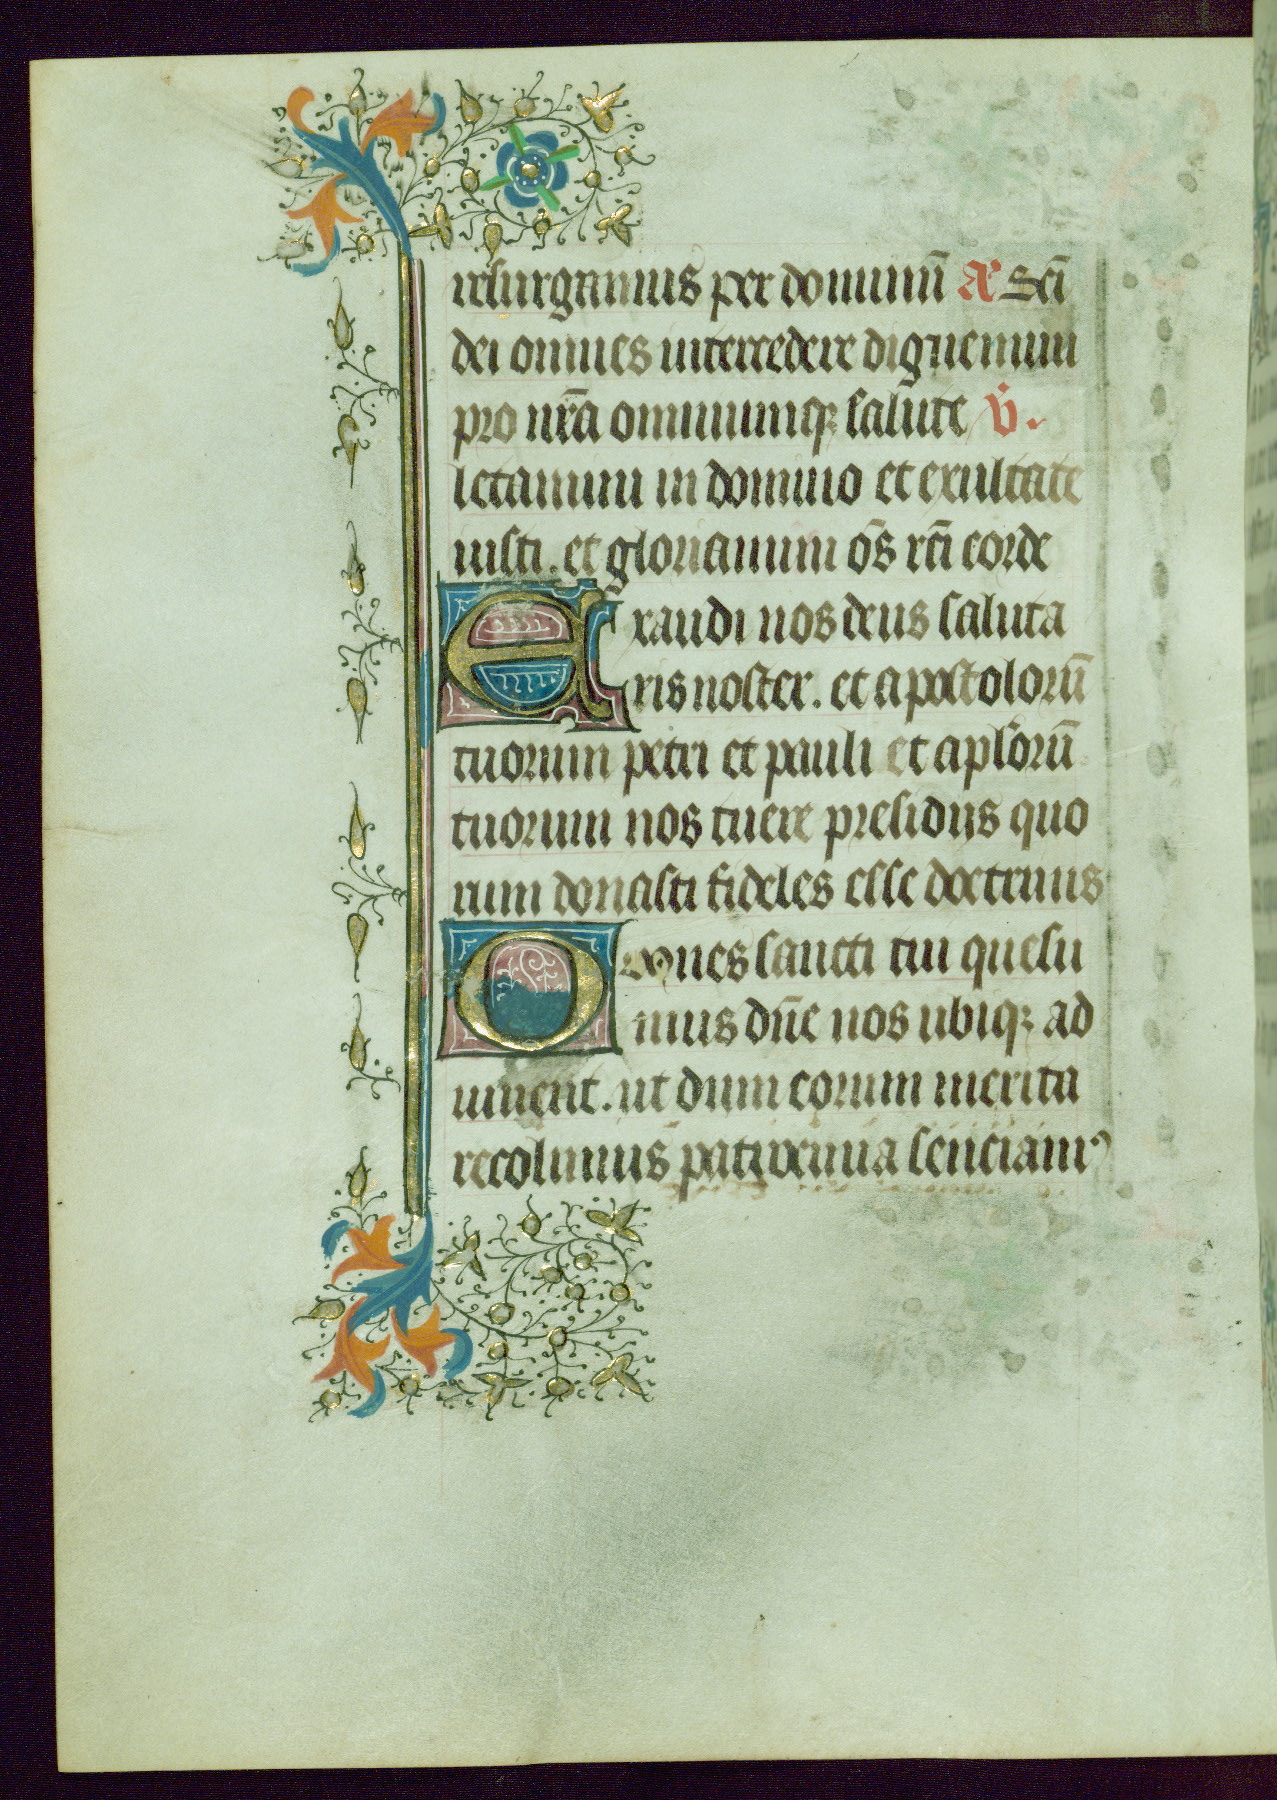 resurgamus per dominū A͞ Scī
dei omnes intercedere dignemini
pro nr̄a omniumq; salute v̄.
letamini in domino et exultate
iusti. et gloriamini om̄s rcti corde
Exaudi nos deus saluta
ris noster. et apostolorū
tuorum petri et pauli et aplorū
tuorum nos tuere presidijs quo
rum donasti fideles esse doctrinis
Omnes sancti tui quesu
mus dn̄e nos ubiq; ad
iuuent. ut dum eorum merita
recolimus patrocinia senciamꝰ